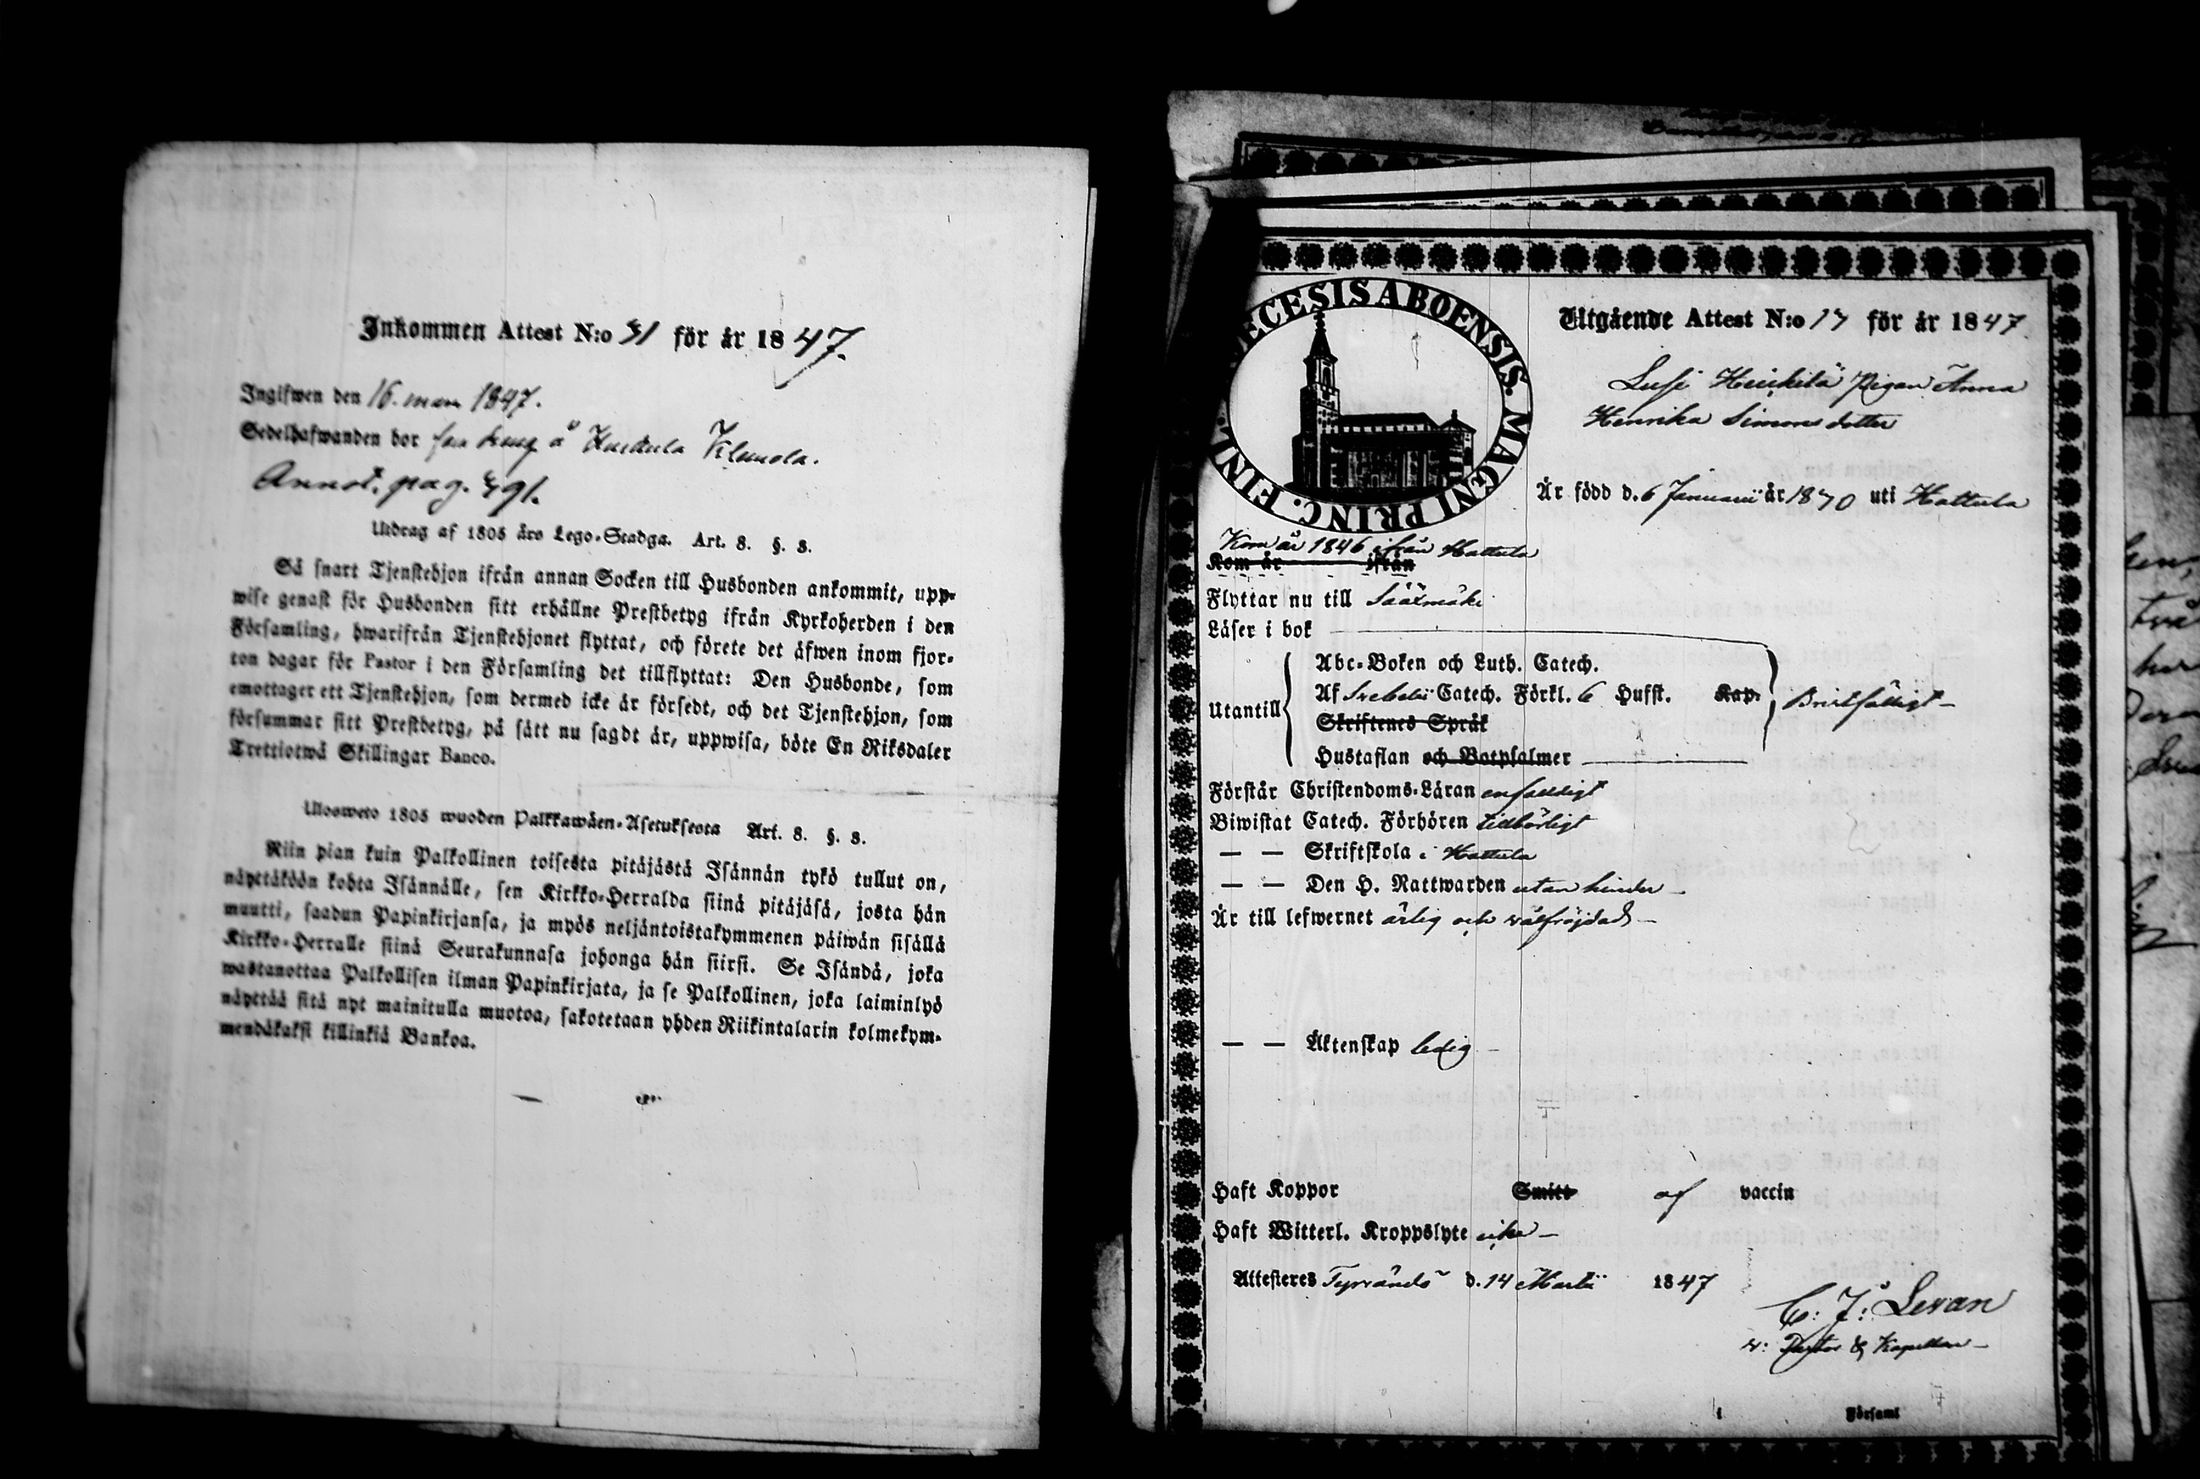 Inkommen Attest N:o 31 för år 1847.
Ingifwen den 16. mars 1847.
Sedelhafwanden bor å Klemola.
Annot. pag. 491.
Utdrag af 1805 års Lego-Stadga. Art. 8. §. 3.
Så snart Tjenstehjon ifrån annan Socken till Husbonden ankommit, upp-
wise genast för Husbonden sitt erhållne Prestbetyg ifrån Kyrkoherden i den
Församling, hwarifrån Tjenstehjonet flyttat, och förete det äfwen inom fjor-
ton dagar för Pastor i den Församling det tillflyttat: Den Husbonde, som
emottager ett Tjenstehjon, som dermed icke är försedt, och det Tjenstehjon, som
försummar sitt Prestbetyg, på sätt nu sagdt är, uppwisa, böte En Riksdaler
Trettiotwå Skillingar Banco.
Ulosweto 1805 wuoden Palkkawäen-Asetuksesta Art. 8. §. 3.
Niin pian kuin Palkollinen toisesta pitäjästä Isännän tykö tullut on,
näyttäköön kohta Isännälle, sen Kirkko-Herralda siinä pitäjäsä, josta hän
muutti, saadun Papinkirjansa, ja myös neljäntoistakymmenen päiwän sisällä
Kirkko-Herralle siinä Seurakunnasa johonga hän siirsi. Se Isändä, joka
wastanottaa Palkollisen ilman Papinkirjata, ja se Palkollinen, joka laiminlyö
näyttää sitä nyt mainitulla muotoa, sakotetaan yhden Riikintalarin kolmekym-
mendäkaksi killinkiä Bankoa.
DIECESIS ABOENSIS. MAGNI PRINC. FINL.
Utgående Attest N:o 17 för år 1847
Heickilä Pigan Anna
Henrika Simonsdotter
Är född d. 6 Januarii år 1830 uti Hattula
Kom år 1846 ifrån Hattula
Kom år ifrån
Flyttar nu till Sääxmäki
Läser i bok
Utantill
Abc-Boken och Luth. Catech.
Af Svebelii Catech. Förkl. 6 Hufst. Kap.
Skriftenes Språk
Hustaflan och Botpsalmer
Bristfälligt
Förstår Christendoms-Läran enfaldigt
Biwistat Catech. Förhören tillbörligt
— — Skriftskola i Hattula
— — Den H. Nattwarden utan hinder
Är till lefwernet ärlig och välfräjdad
— — Äktenskap ledig
Haft Koppor Smitt af vaccin
Haft Witterl. Kroppslyte icke
Attesteres Tyrvändö d. 14 Martii 1847
C: J: Levan
v: Pastor & Kapellan
Församl